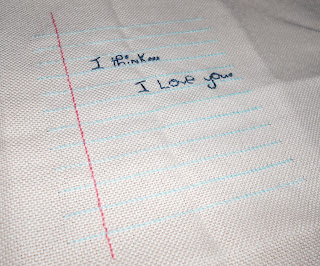 I think...
I Love you...